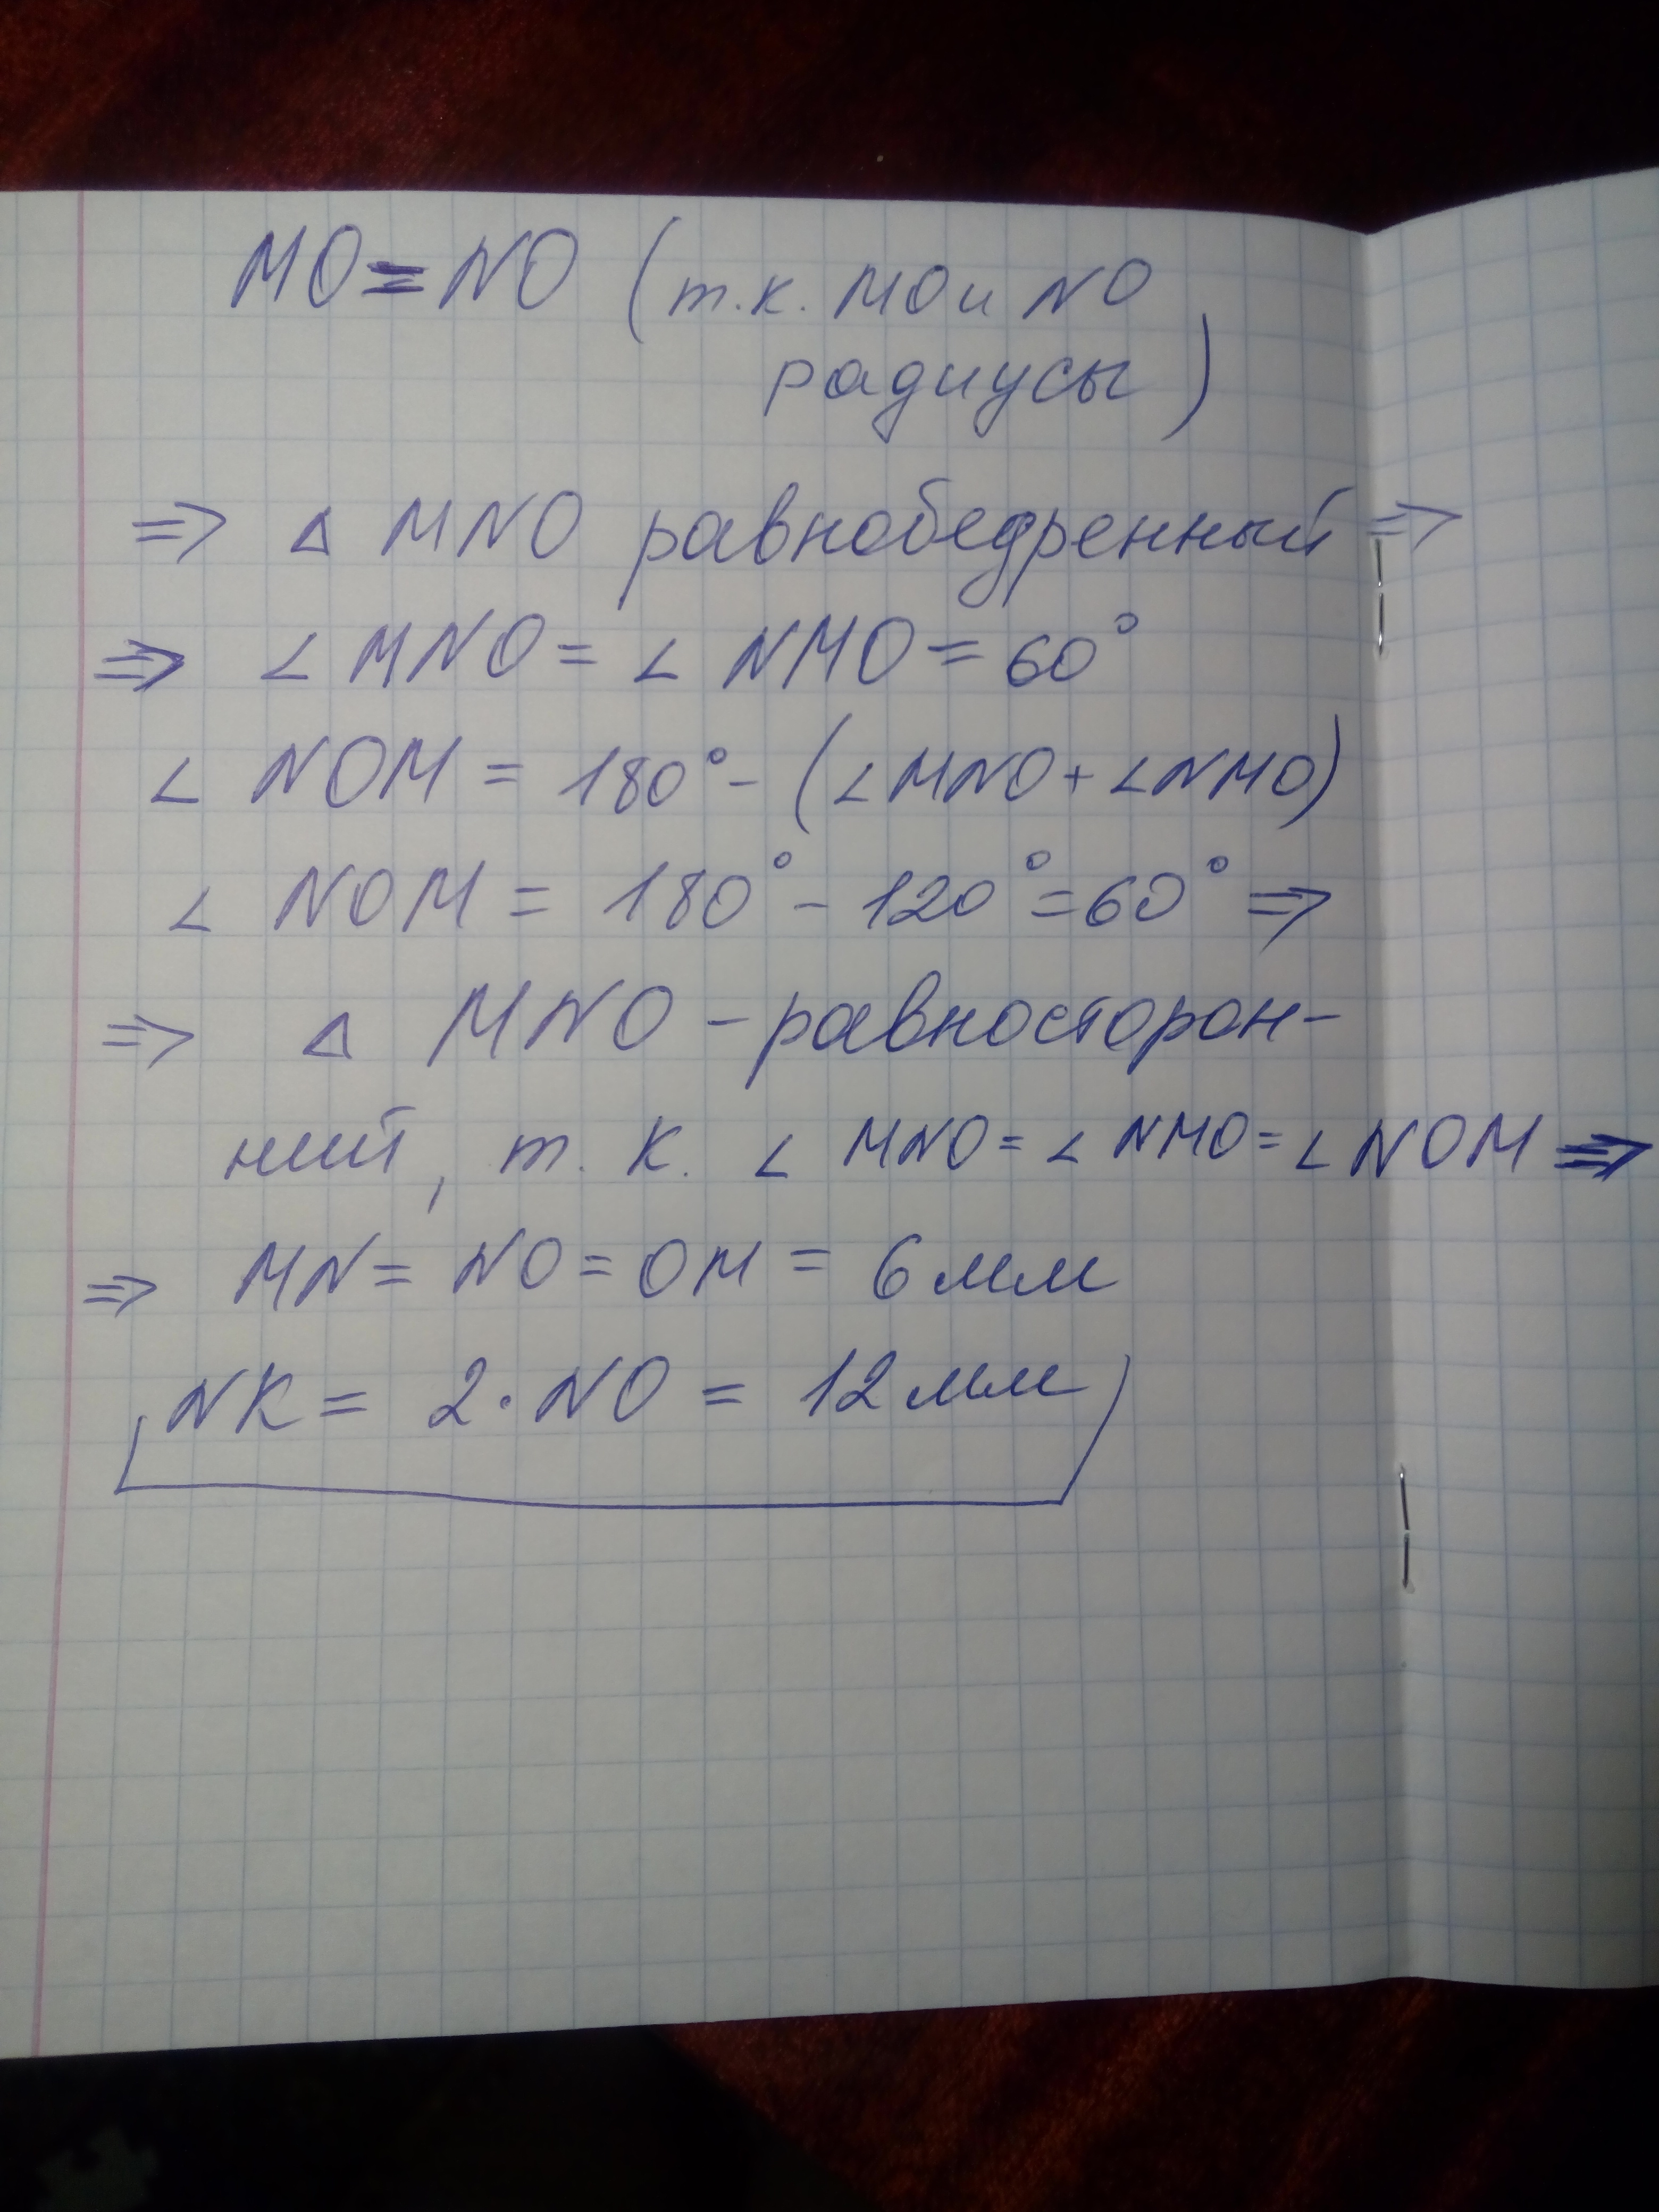 MO = NO (т.к. MO и NO
радиусы)
=> Δ MNO равнобедренный =>
=> ∠ MNO = ∠ NMO = 60°
∠ NOM = 180° - (∠MNO + ∠NMO)
∠ NOM = 180° - 120° = 60° =>
=> Δ MNO - равносторон-
ний, т. к. ∠ MNO = ∠ NMO = ∠ NOM =>
=> MN = NO = OM = 6 мм
NK = 2 · NO = 12 мм